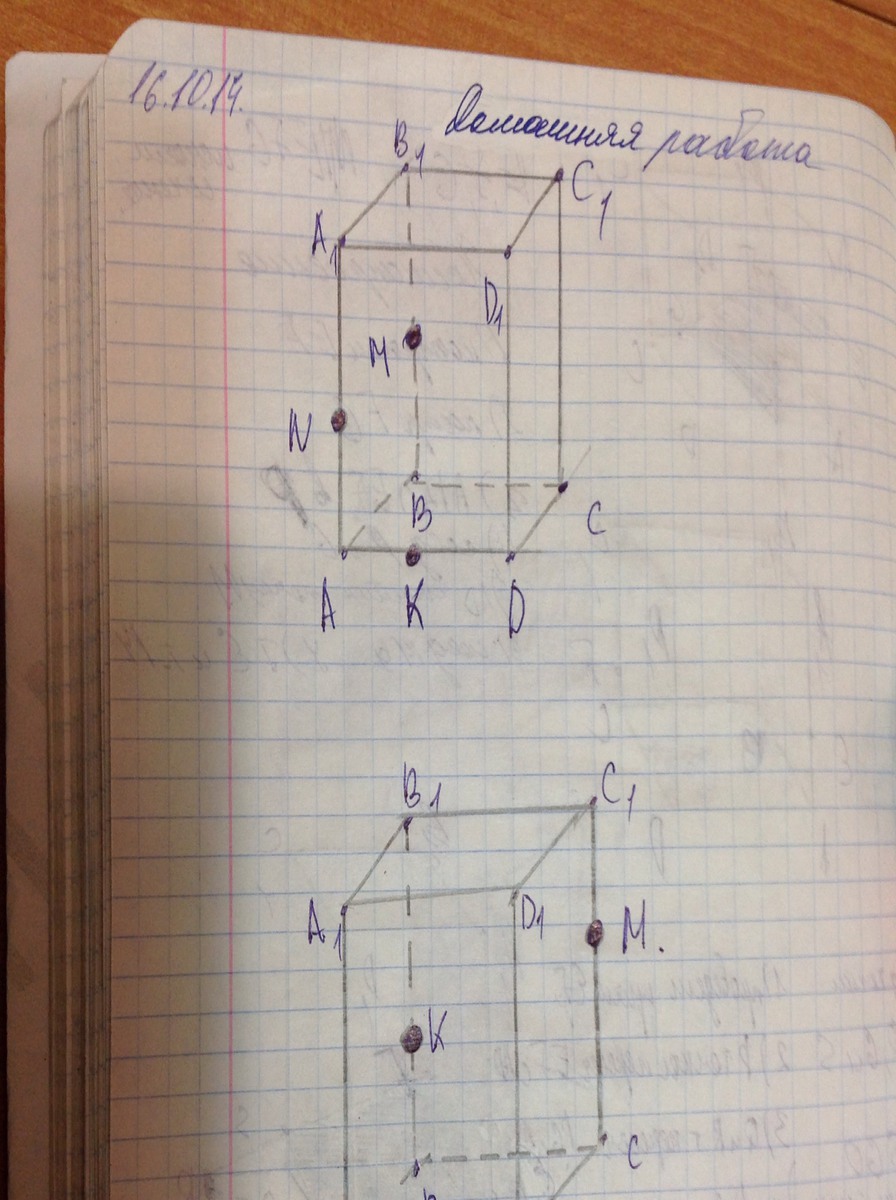 16.10.14.
Домашняя работа
B1
C1
A1
D1
M
N
B
C
A K D
B1
C1
A1
D1
M.
K
C